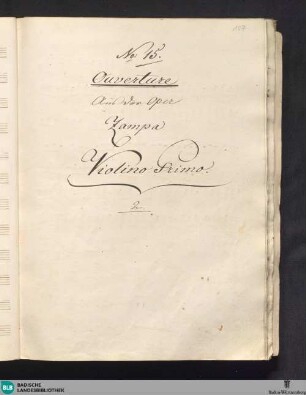 No 15.
Ouverture
Aus der Oper
Zampa
Violino Primo.
2.
BLB
BADISCHE
LANDESBIBLIOTHEK
Baden-Württemberg